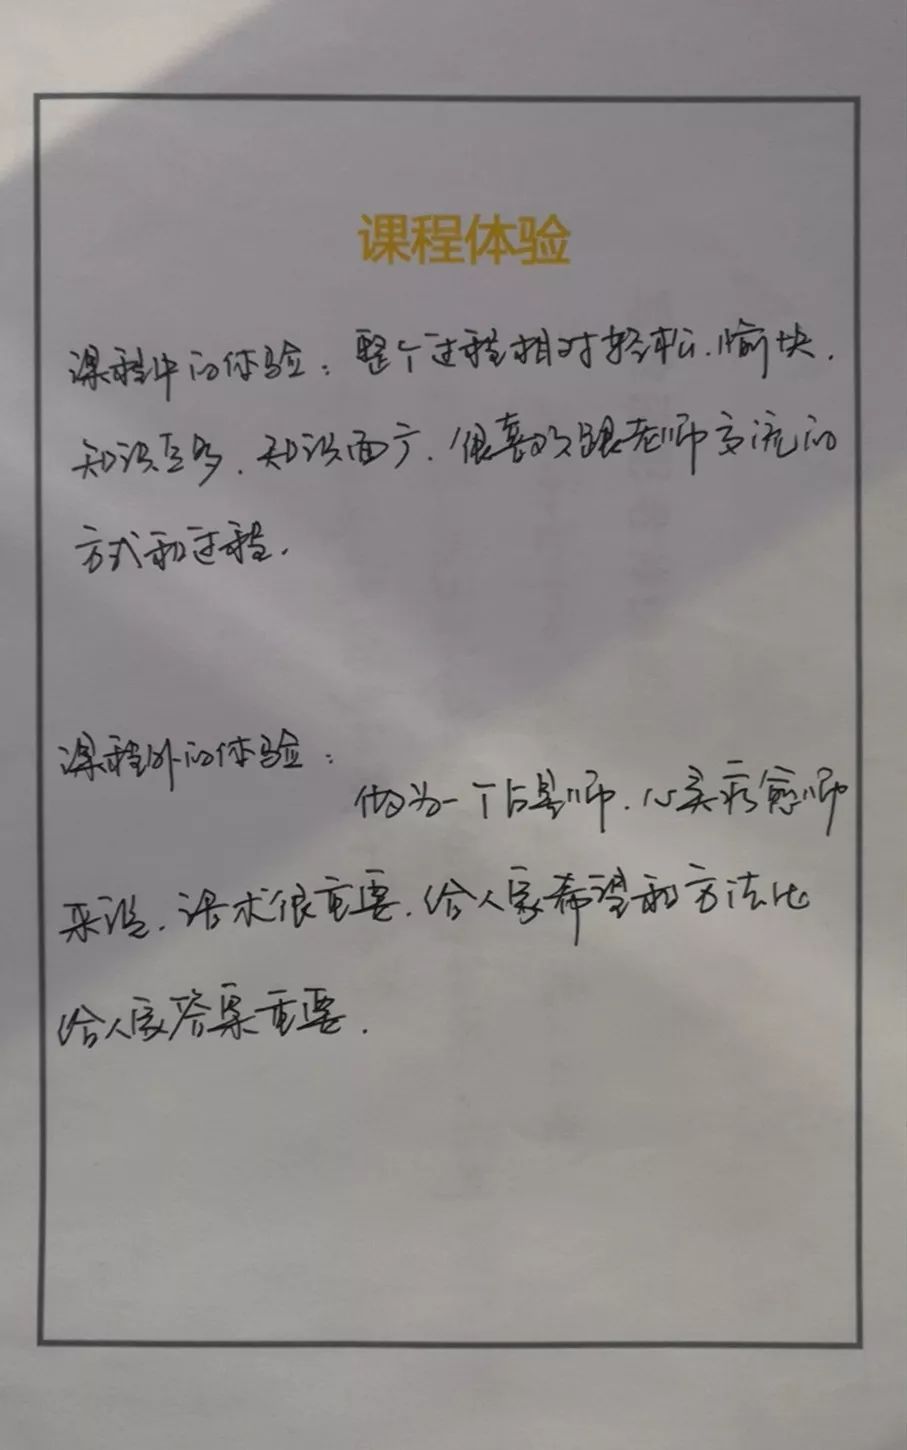 课程体验
课程中的体验：整个过程相对轻松、愉快.
知识点多、知识面广、很喜欢跟老师交流的
方式和过程.
课程外的体验：
做为一个占星师、心灵疗愈师
来说、话术很重要、给人家希望和方法比
给人家答案重要.